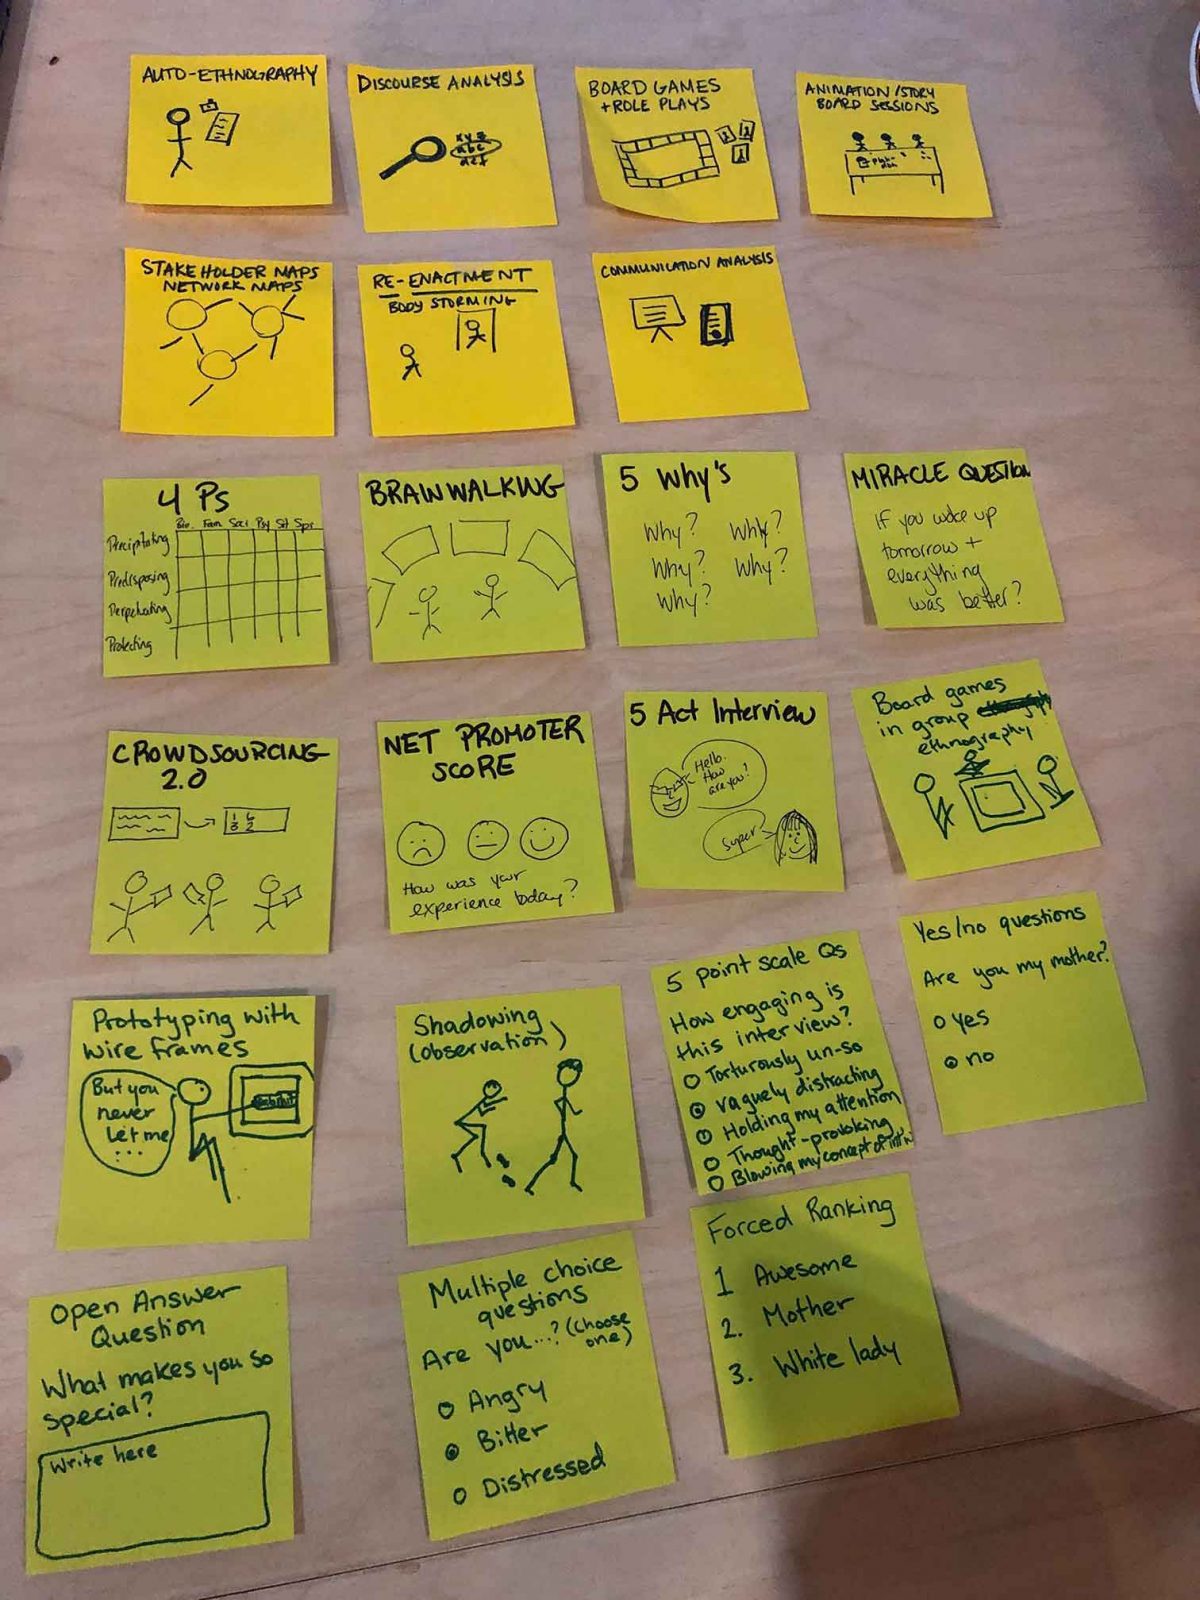 AUTO-ETHNOGRAPHY
DISCOURSE ANALYSIS
xyz
abc
def
BOARD GAMES
+ ROLE PLAYS
ANIMATION/STORY
BOARD SESSIONS
STAKEHOLDER MAPS
NETWORK MAPS
RE-ENACTMENT
BODY STORMING
COMMUNICATION ANALYSIS
4 Ps
Bio. Fam Soci Psy Sit Spir
Precipitating
Predisposing
Perpetuating
Protecting
BRAINWALKING
5 Why's
Why? Why?
Why? Why?
Why?
MIRACLE QUESTION
If you woke up
tomorrow +
everything
was better?
CROWDSOURCING
2.0
NET PROMOTER
SCORE
How was your
experience today?
5 Act Interview
Hello.
How
are you?
Super
Board games
in group
ethnography
Prototyping with
wire frames
But you
never
let me
...
Shadowing
(observation)
5 point scale Qs
How engaging is
this interview?
Torturously un-so
vaguely distracting
Holding my attention
Thought-provoking
Blowing my concept of
Yes/no questions
Are you my mother?
yes
no
Open Answer
Question
What makes you so
special?
Write here
Multiple choice
questions
Are you...? (Choose
one)
Angry
Bitter
Distressed
Forced Ranking
1 Awesome
2. Mother
3. White lady